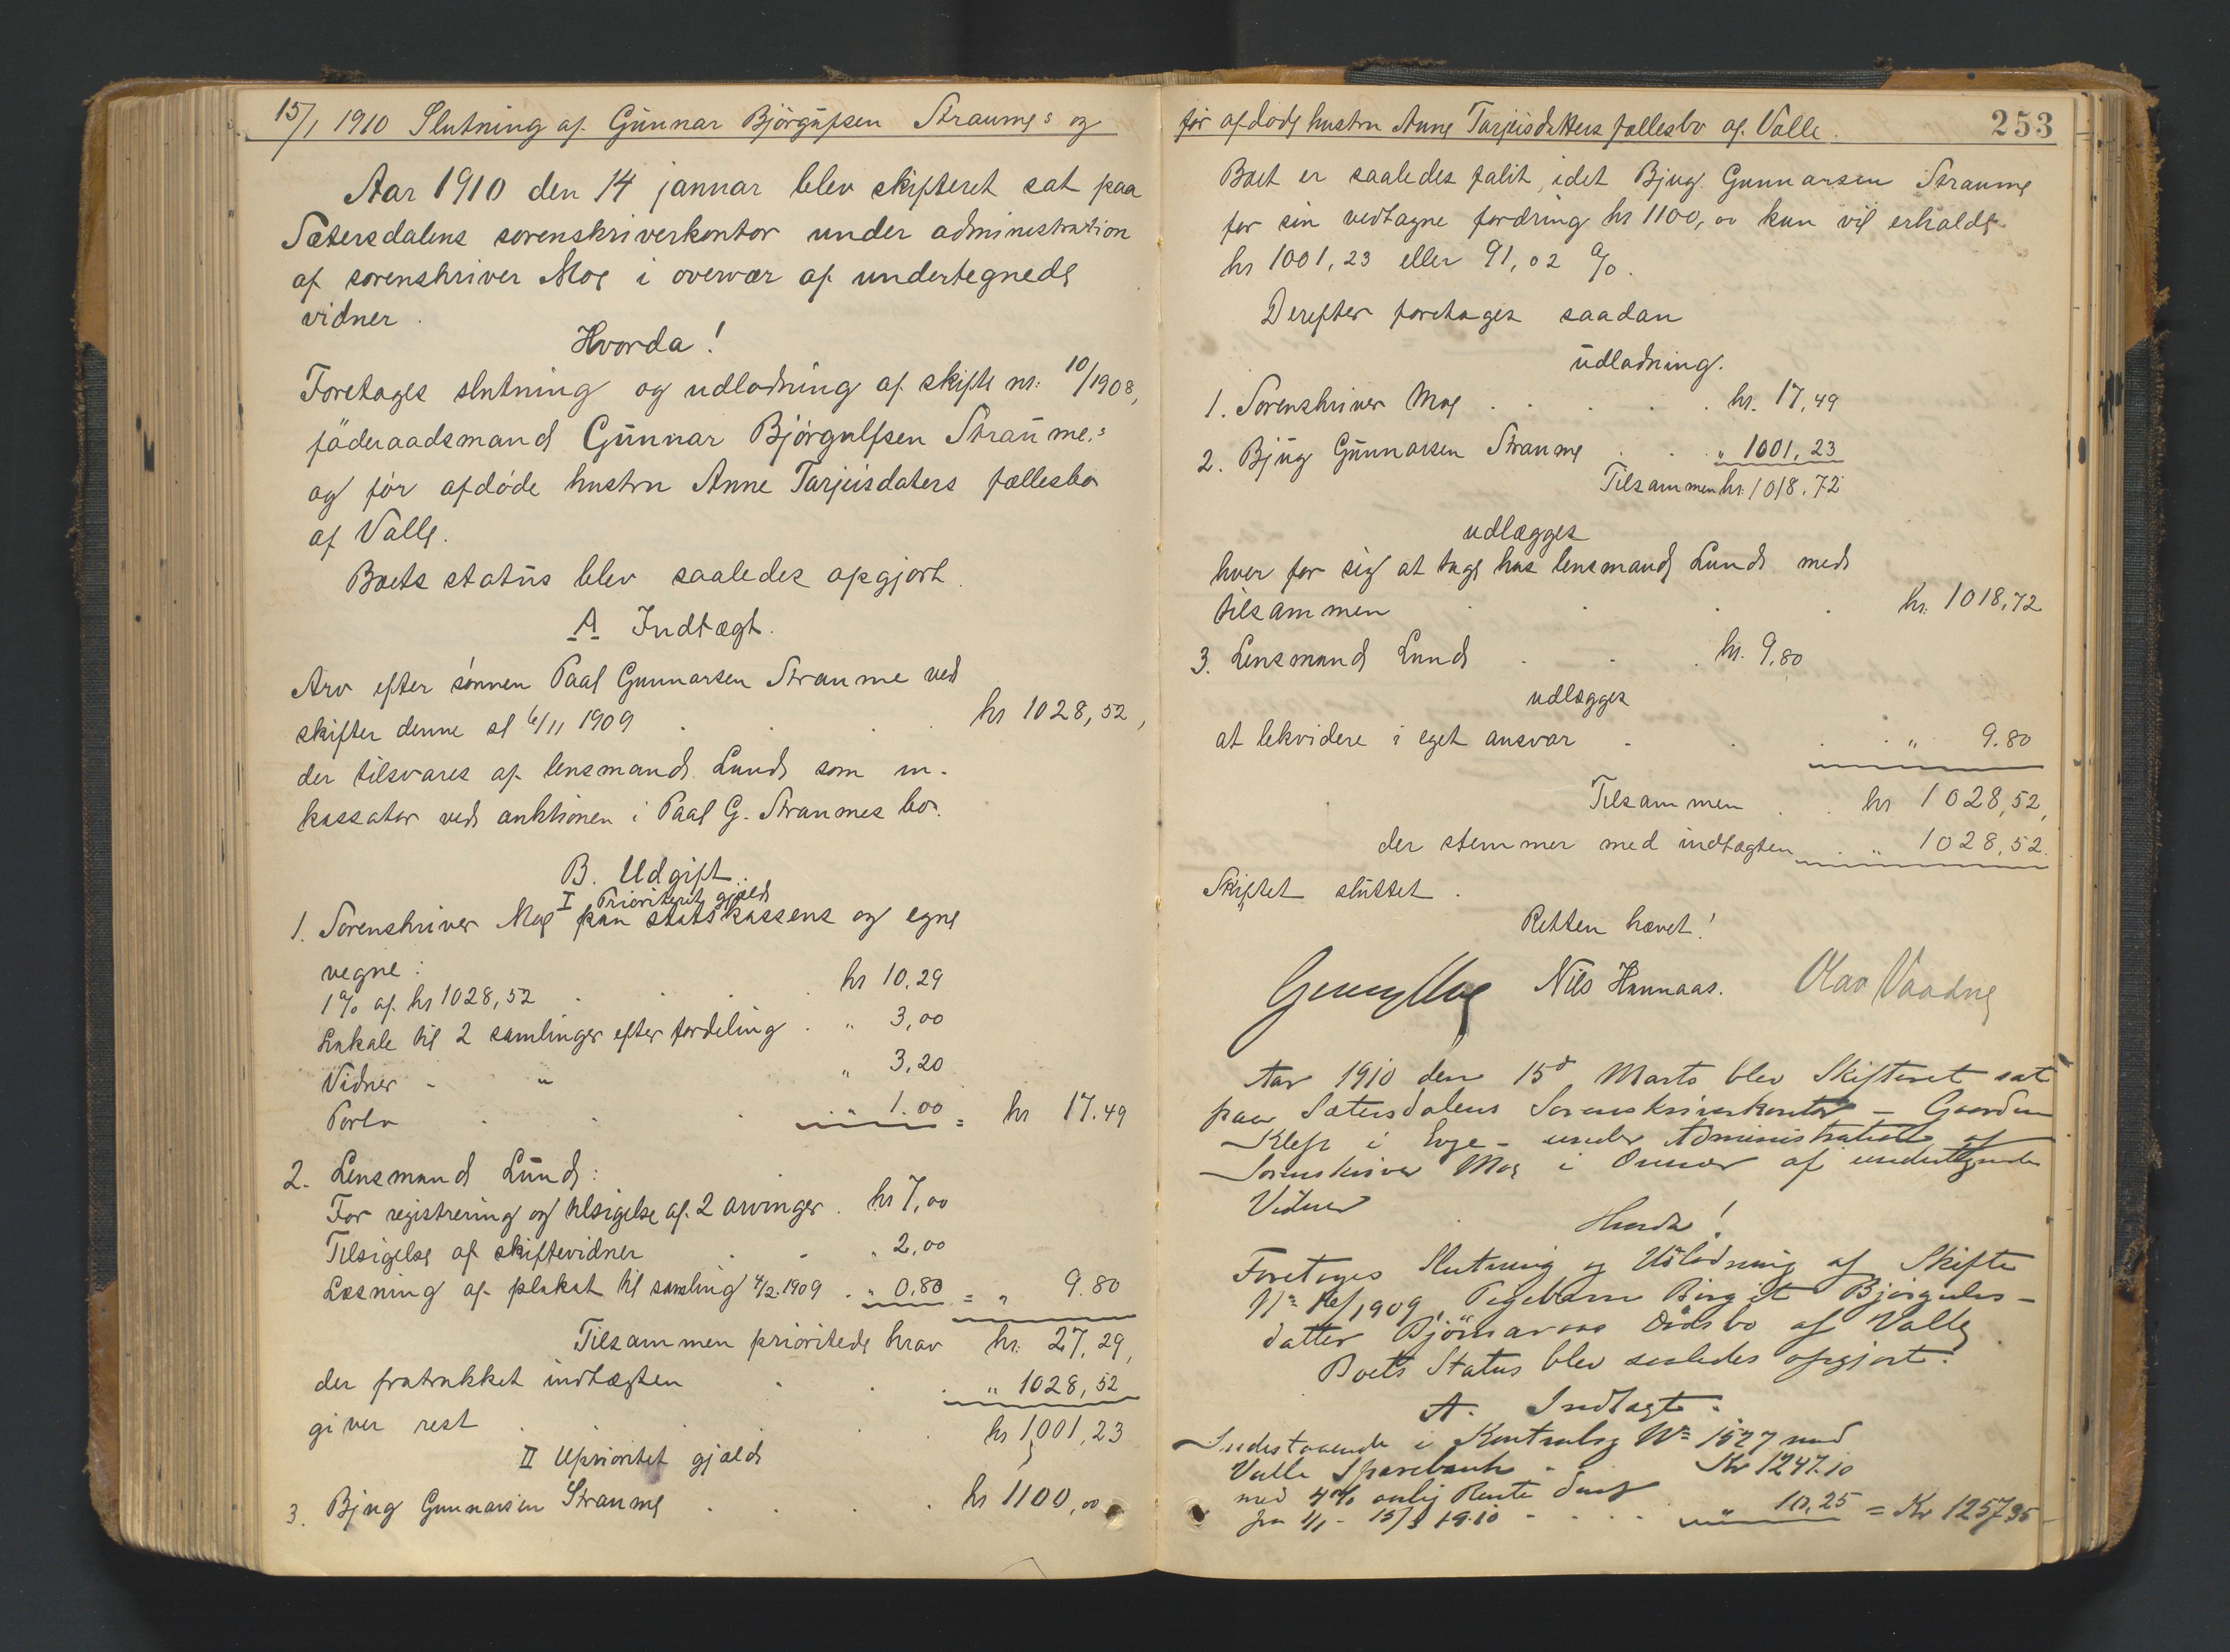 15/1 1910 Slutning af Gunnar Björgufsen Straumes og
Aar 1910 den 14 januar blev skifteret sat paa
Sætersdalens sorenskriverkontor under administration
af sorenskriver Moe i overvær af undertegnede
vidner.
Hvorda!
Foretages slutning og udlodning af skifte nr. 10/1908,
föderaadsmand Gunnar Björgulfsen Straume,s
og för afdöde hustru Anne Tarjeisdaters fællesbo
af Valle.
Boets status blev saaledes opgjort.
A Indtægt.
Arv efter sönnen Paal Gunnarsen Straume ved
skifter denne sl 6/11 1909 . . . kr 1028,52,
der tilsvares af lensmand Lund som in-
kassator ved auktionen i Paal G. Straumes bo.
B. Udgift.
I Prioriteret gjæld
1. Sorenskriver Moe paa statskassens og egne
vegne:
1 % af kr 1028,52 . . . kr 10,29
Lokale til 2 samlinger efter fordeling . " 3,00
Vidner - " " 3,20
Porto . . . " 1.00 = kr 17.49
2. Lensmand Lund:
For registrering og tilsigelse af 2 arvinger . kr 7,00
Tilsigelse af skiftevidner . . " 2,00
Læsning af plakat til samling 4/2 1909 . " 0,80 = " 9.80
Tilsammen prioritede krav kr. 27,29,
der fratrukket indtægten . . . " 1028,52
giver rest . . . kr 1001,23
II Uprioritet gjæld
3. Bjug Gunnarsen Straume . . . . kr 1100,00
för afdöde hustru Anne Tarjeisdatters fællesbo af Valle.
253
Boet er saaledes falit, idet Bjug Gunnarsen Straume
for sin vedtagne fordring kr 1100,00 kun vil erholde
kr 1001,23 eller 91,02 %.
Derefter foretages saadan
udlodning.
1. Sorenskriver Moe . . . . . kr. 17,49
2. Bjug Gunnarsen Straume . . " 1001,23
Tilsammen kr. 1018,72
udlægges
hver for sig at tage hos lensmand Lund med
tilsammen . . . . kr. 1018,72
3. Lensmand Lund . . . kr. 9,80
udlægges
at lekvidere i eget ansvar . . . . " 9.80
Tilsammen . . kr 1028,52,
der stemmer med indtægten . " 1028,52.
Skiftet sluttet.
Retten hævet!
Moe Nils Hannaas. Olav Vaadne
Aar 1910 den 15d Marts blev Skifteret sat
paa Sætersdalens Sorenskriverkontor - Gaarden
Klep i Evje - under Administration af
Sorenskriver Moe i Overvær af undertegnede
Vidner
Hvorda!
Foretages Slutning og Udlodning af Skifte
No 16/1909, Pigebarn Birgit Bjørguls-
datter Bjørnaraas Dödsbo af Valle.
Boets Status blev saaledes opgjort.
A. Indtægt.
Indestaaende i Kontrabog No 1527 med
Valle Sparebank - . Kr 1247.10
med 4% aarlig Rente deraf
fra 1/1 - 15/3 1910 . . . . " 10,25 = Kr 1257.35